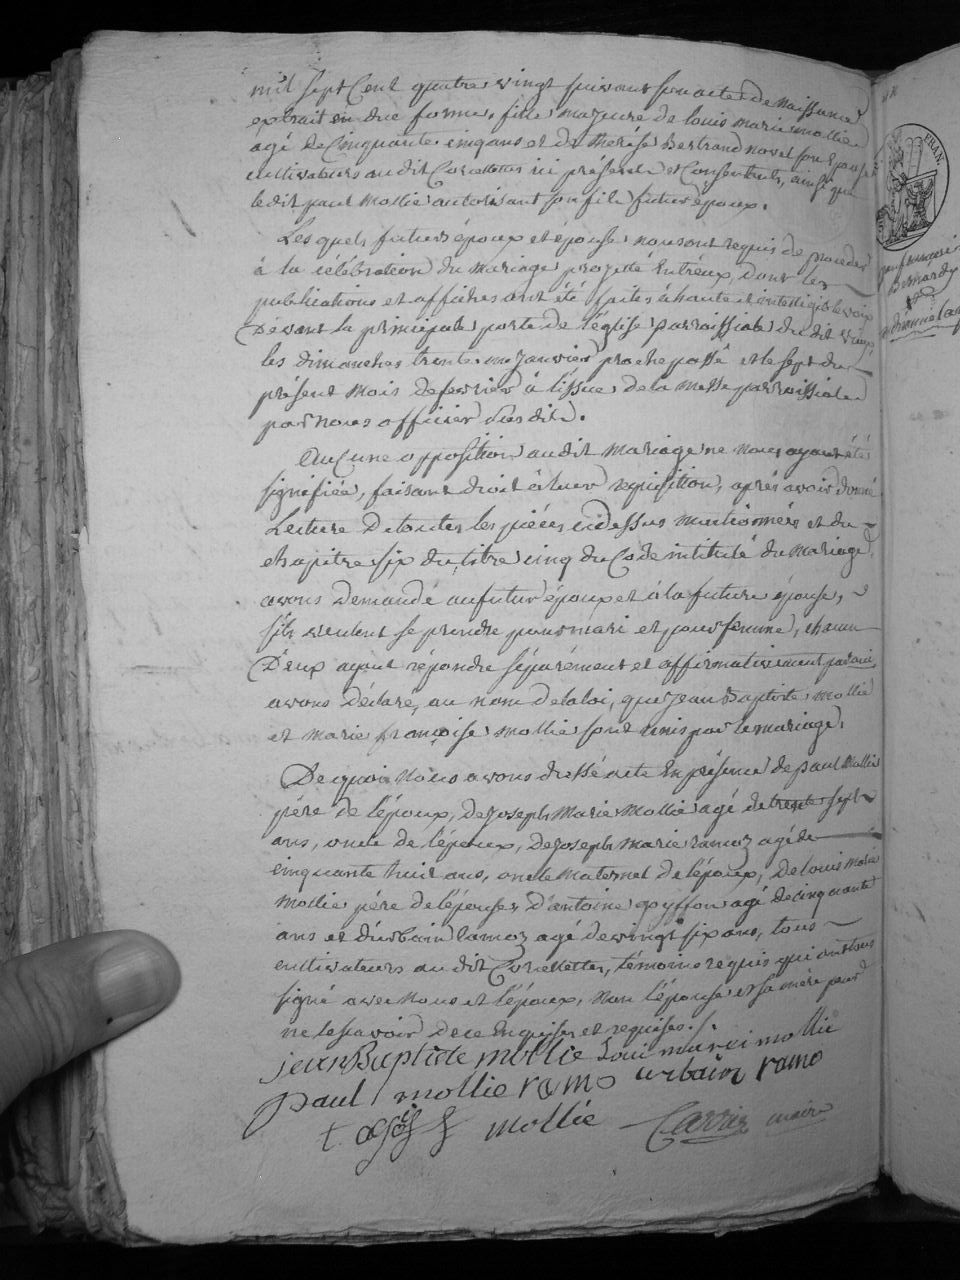 mil sept Cent quatre vingt suivant son acte de Naissance
extrait en due forme, fille majeure de louis marie mollie
agé de Cinquante cinq ans et de thérése Bertrand novel son Epouse
cultivateurs au dit Cevettes ici présents et Consentents, ainsi que
le dit paul mollie autorisant son fils futur époux.
Les quels futurs époux et épouse nous ont requis de proceder
à la célébration du mariage projetté Entréux, dont les
publications et affiches ont été faites à haute et intelligible voix
Dévant la principale porte de l'église parroissiale du dit
les dimanches trente un Janvier proche passé et le sept du
présent mois de fevrier à l'issue de la Messe parroissiale
par Nous officier susdit.
AuCune opposition au dit mariage ne Nous ayant été
signifiée, faisant droit à leur requisition, aprés avoir donné
Lecture De toutes les piéces cidessus mentionnées et du
chapitre six du titre cinq du Code intitulé du Mariage,
avons Demandé au futur époux et à la future épouse,
s'ils veulent se prendre pour mari et pour femme, chacun
D'eux ayant répondu séparément et affirmativement
avons déclaré, au nom de la loi, que Jean Baptiste mollie
et marie françoise mollie sont unis par le mariage.
De quoi Nous avons dressé acte En présence de paul Mollie
pére de l'époux, de Joseph Marie Mollie agé de trente sept
ans, oncle de l'époux, de Joseph marie ramoz agé de
cinquante huit ans, oncle maternel de l'époux, De louis Marie
Mollie pére de l'épouse, d'antoine gyffon agé de cinquante
ans et d'urbain ramoz agé de vingt six ans, tous
cultivateurs au dit Cevettes, témoins requis qui ont tous
signé avec Nous et l'époux, Non l'épouse et sa mére pour
ne le savoir de ce Enquises et requises./.
jean Baptiste mollie Loui marei mollie
paul mollie ramo urbain ramo
mollie Carrier maire
FRAN.
Bernardy